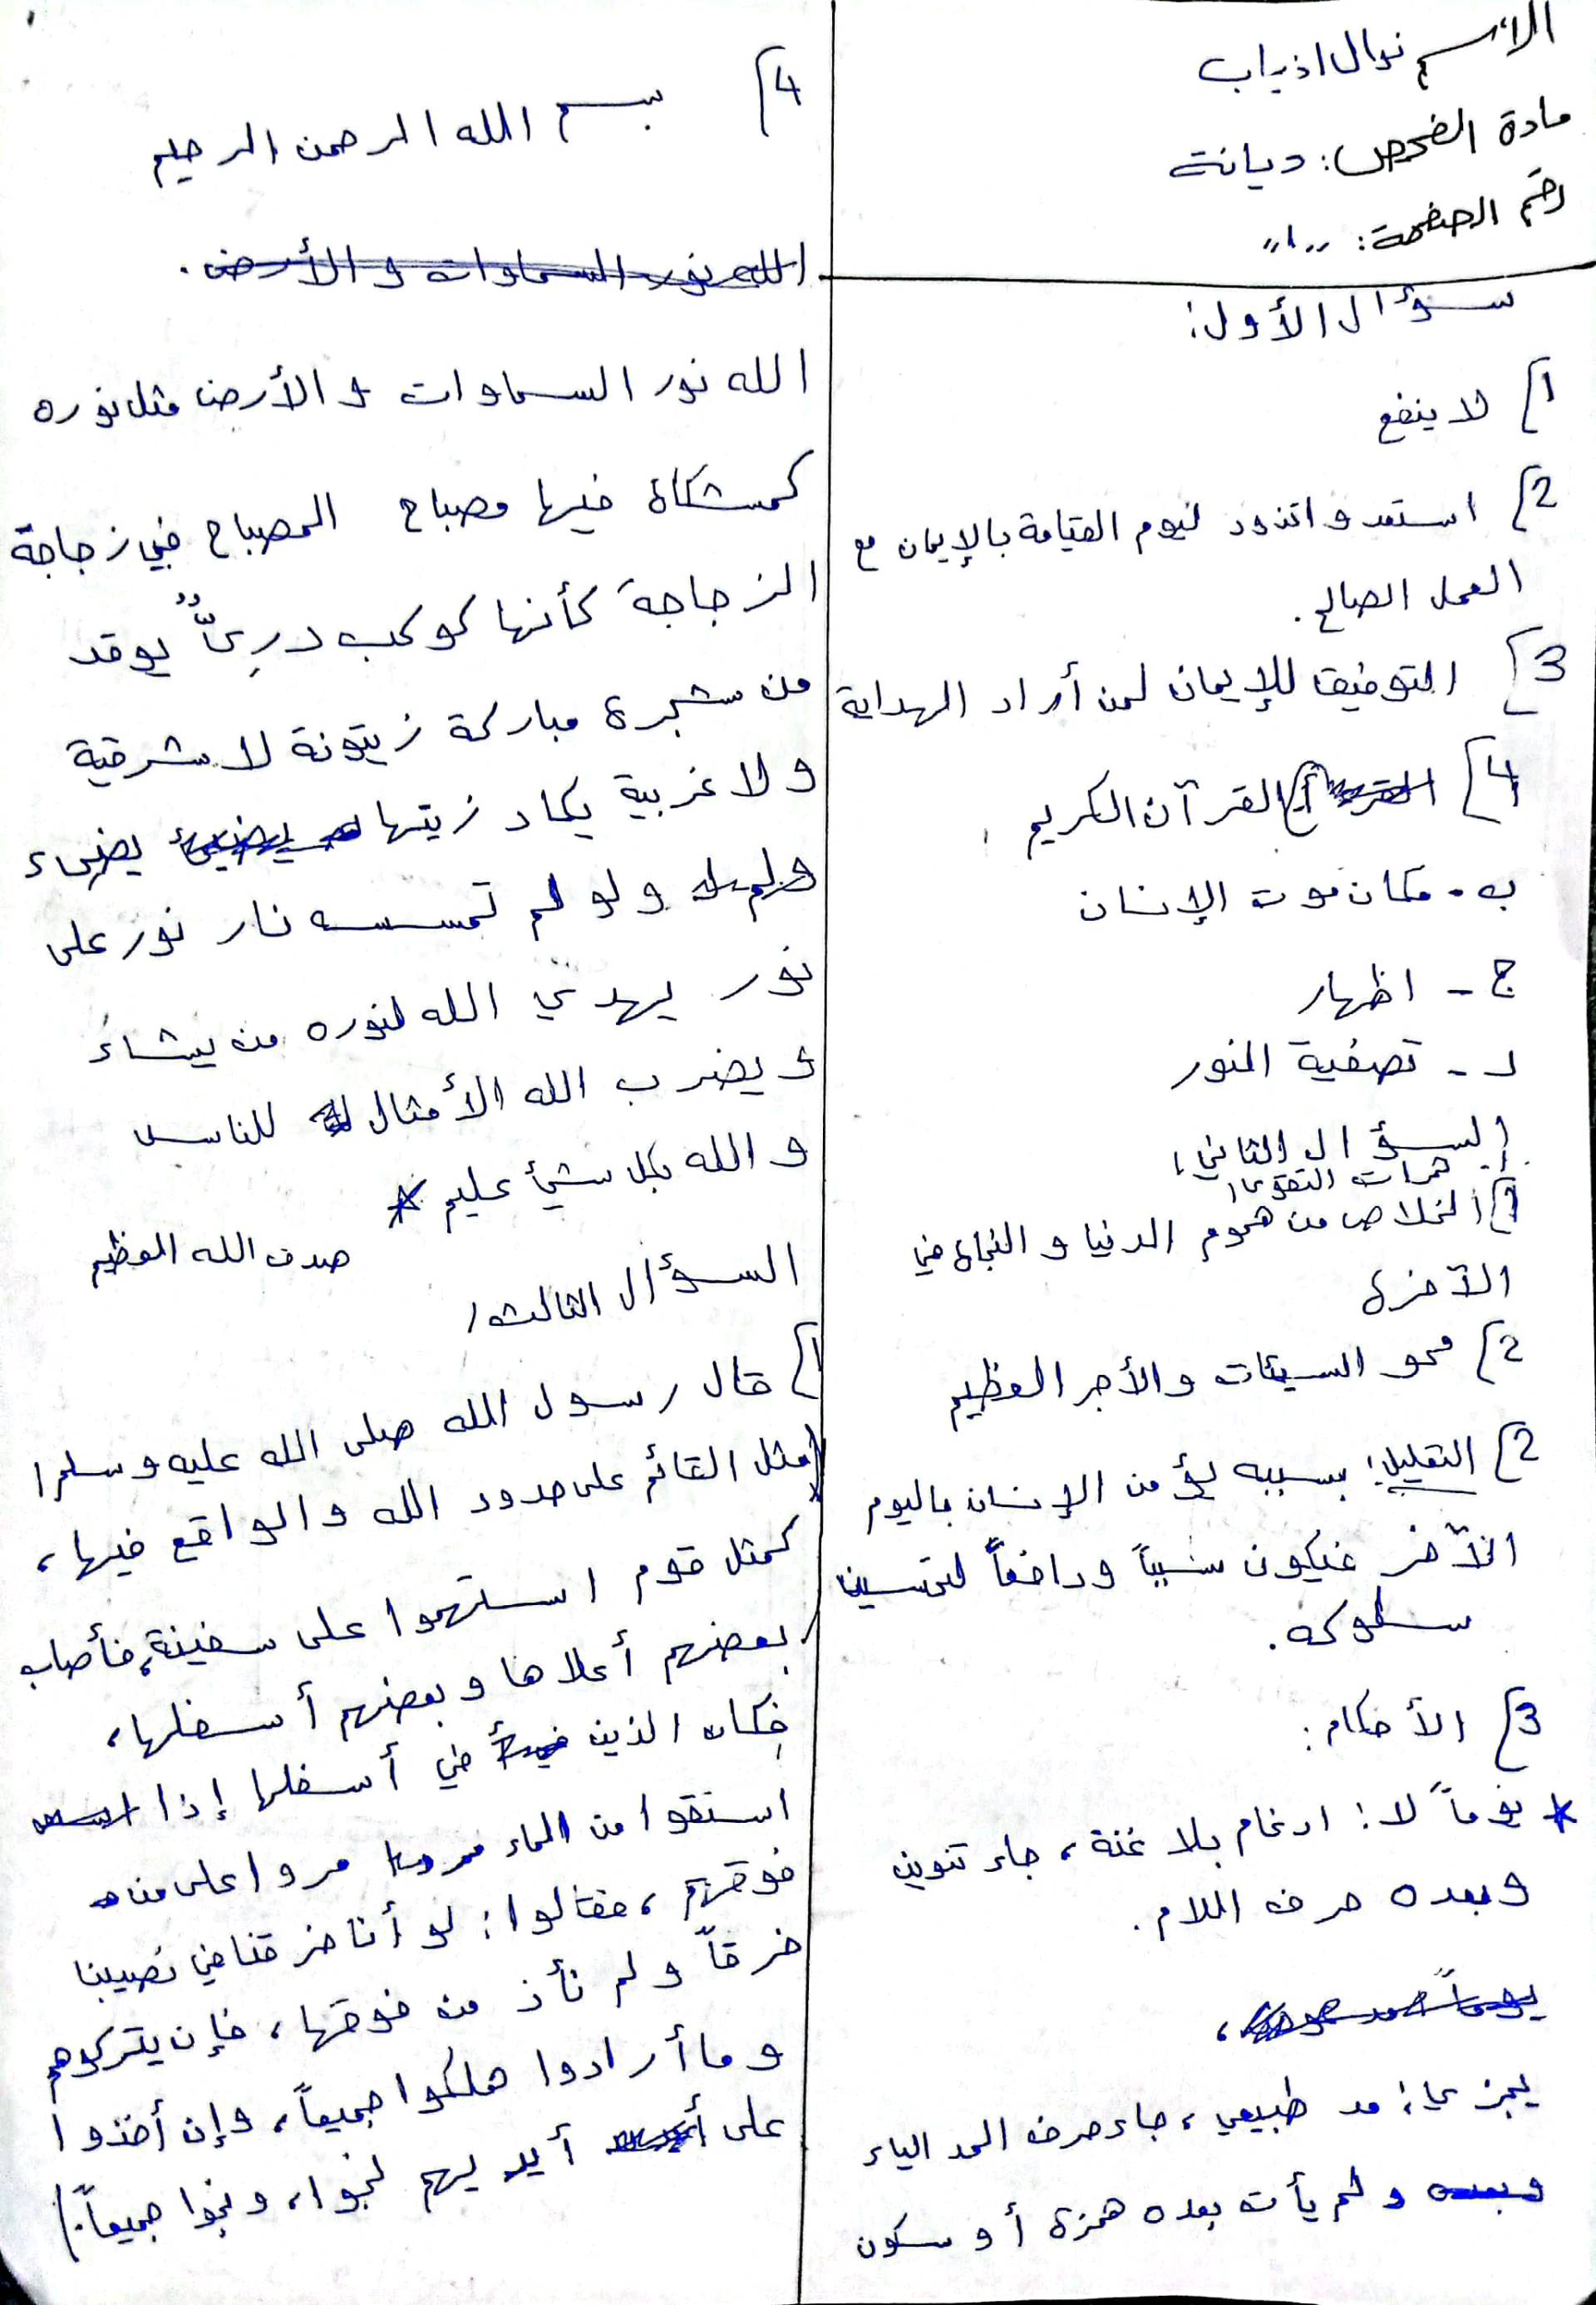 الاسم نوال اذياب
مادة الفحص: ديانة
رقم الصفحة: "١"
سؤال الأول:
1] لا ينفع
2] استعد واتزود ليوم القيامة بالإيمان مع
العمل الصالح.
3] التوفيق للإيمان لمن أراد الهداية
4] أ) القرآن الكريم.
ب - مكان موت الإنسان
ج - اظهار
د - تصفية النور
السؤال الثاني:
ثمرات التقوى:
1] الخلاص من هموم الدنيا و النجاة في
الآخرة
2] محو السيئات والأجر العظيم
2] التعليل: بسببه يؤمن الإنسان باليوم
الآخر فيكون سبباً ودافعاً لتحسين
سلوكه.
3] الأحكام:
* يوماً لا: ادغام بلا غنة، جاء تنوين
وبعده حرف اللام.
يجزي: مد طبيعي، جاء حرف المد الياء
ولم يأت بعده همزة أو سكون
4] بسم الله الرحمن الرحيم
الله نور السماوات والأرض.
الله نور السماوات و الأرض مثل نوره
كمشكاة فيها مصباح المصباح في زجاجة
الزجاجة كأنها كوكب دريٌّ يوقد
من شجرة مباركة زيتونة لا شرقية
ولا غربية يكاد زيتها يضيء
ولو لم تمسسه نار نور على
نور يهدي الله لنوره من يشاء
و يضرب الله الأمثال للناس
و الله بكل شيئ عليم *
صدق الله العظيم
السؤال الثالث:
1] قال رسول الله صلى الله عليه وسلم:
(مثل القائم على حدود الله والواقع فيها،
كمثل قوم استهموا على سفينة، فأصاب
بعضهم أعلاها وبعضهم أسفلها،
فكان الذين في أسفلها إذا
استقوا من الماء مروا على من
فوقهم، فقالوا: لو أنا خرقنا في نصيبنا
خرقاً ولم نأذ من فوقها، فإن يتركوهم
وما أرادوا هلكوا جميعاً، وإن أخذوا
على أيديهم نجوا، ونجوا جميعاً.)